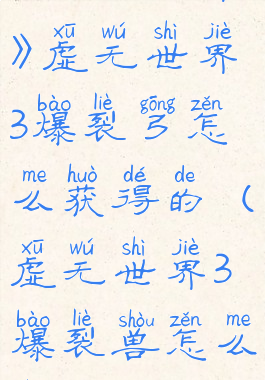 xū wú shì jiè
》虚无世界
bào liè gōng zěn
3爆裂弓怎
me huò dé de
么获得的（
xū wú shì jiè
虚无世界3
bào liè shòu zěn me
爆裂兽怎么